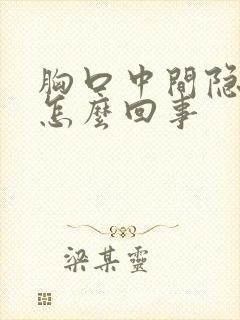 胸口中間隐
怎麼回事
梁某靈